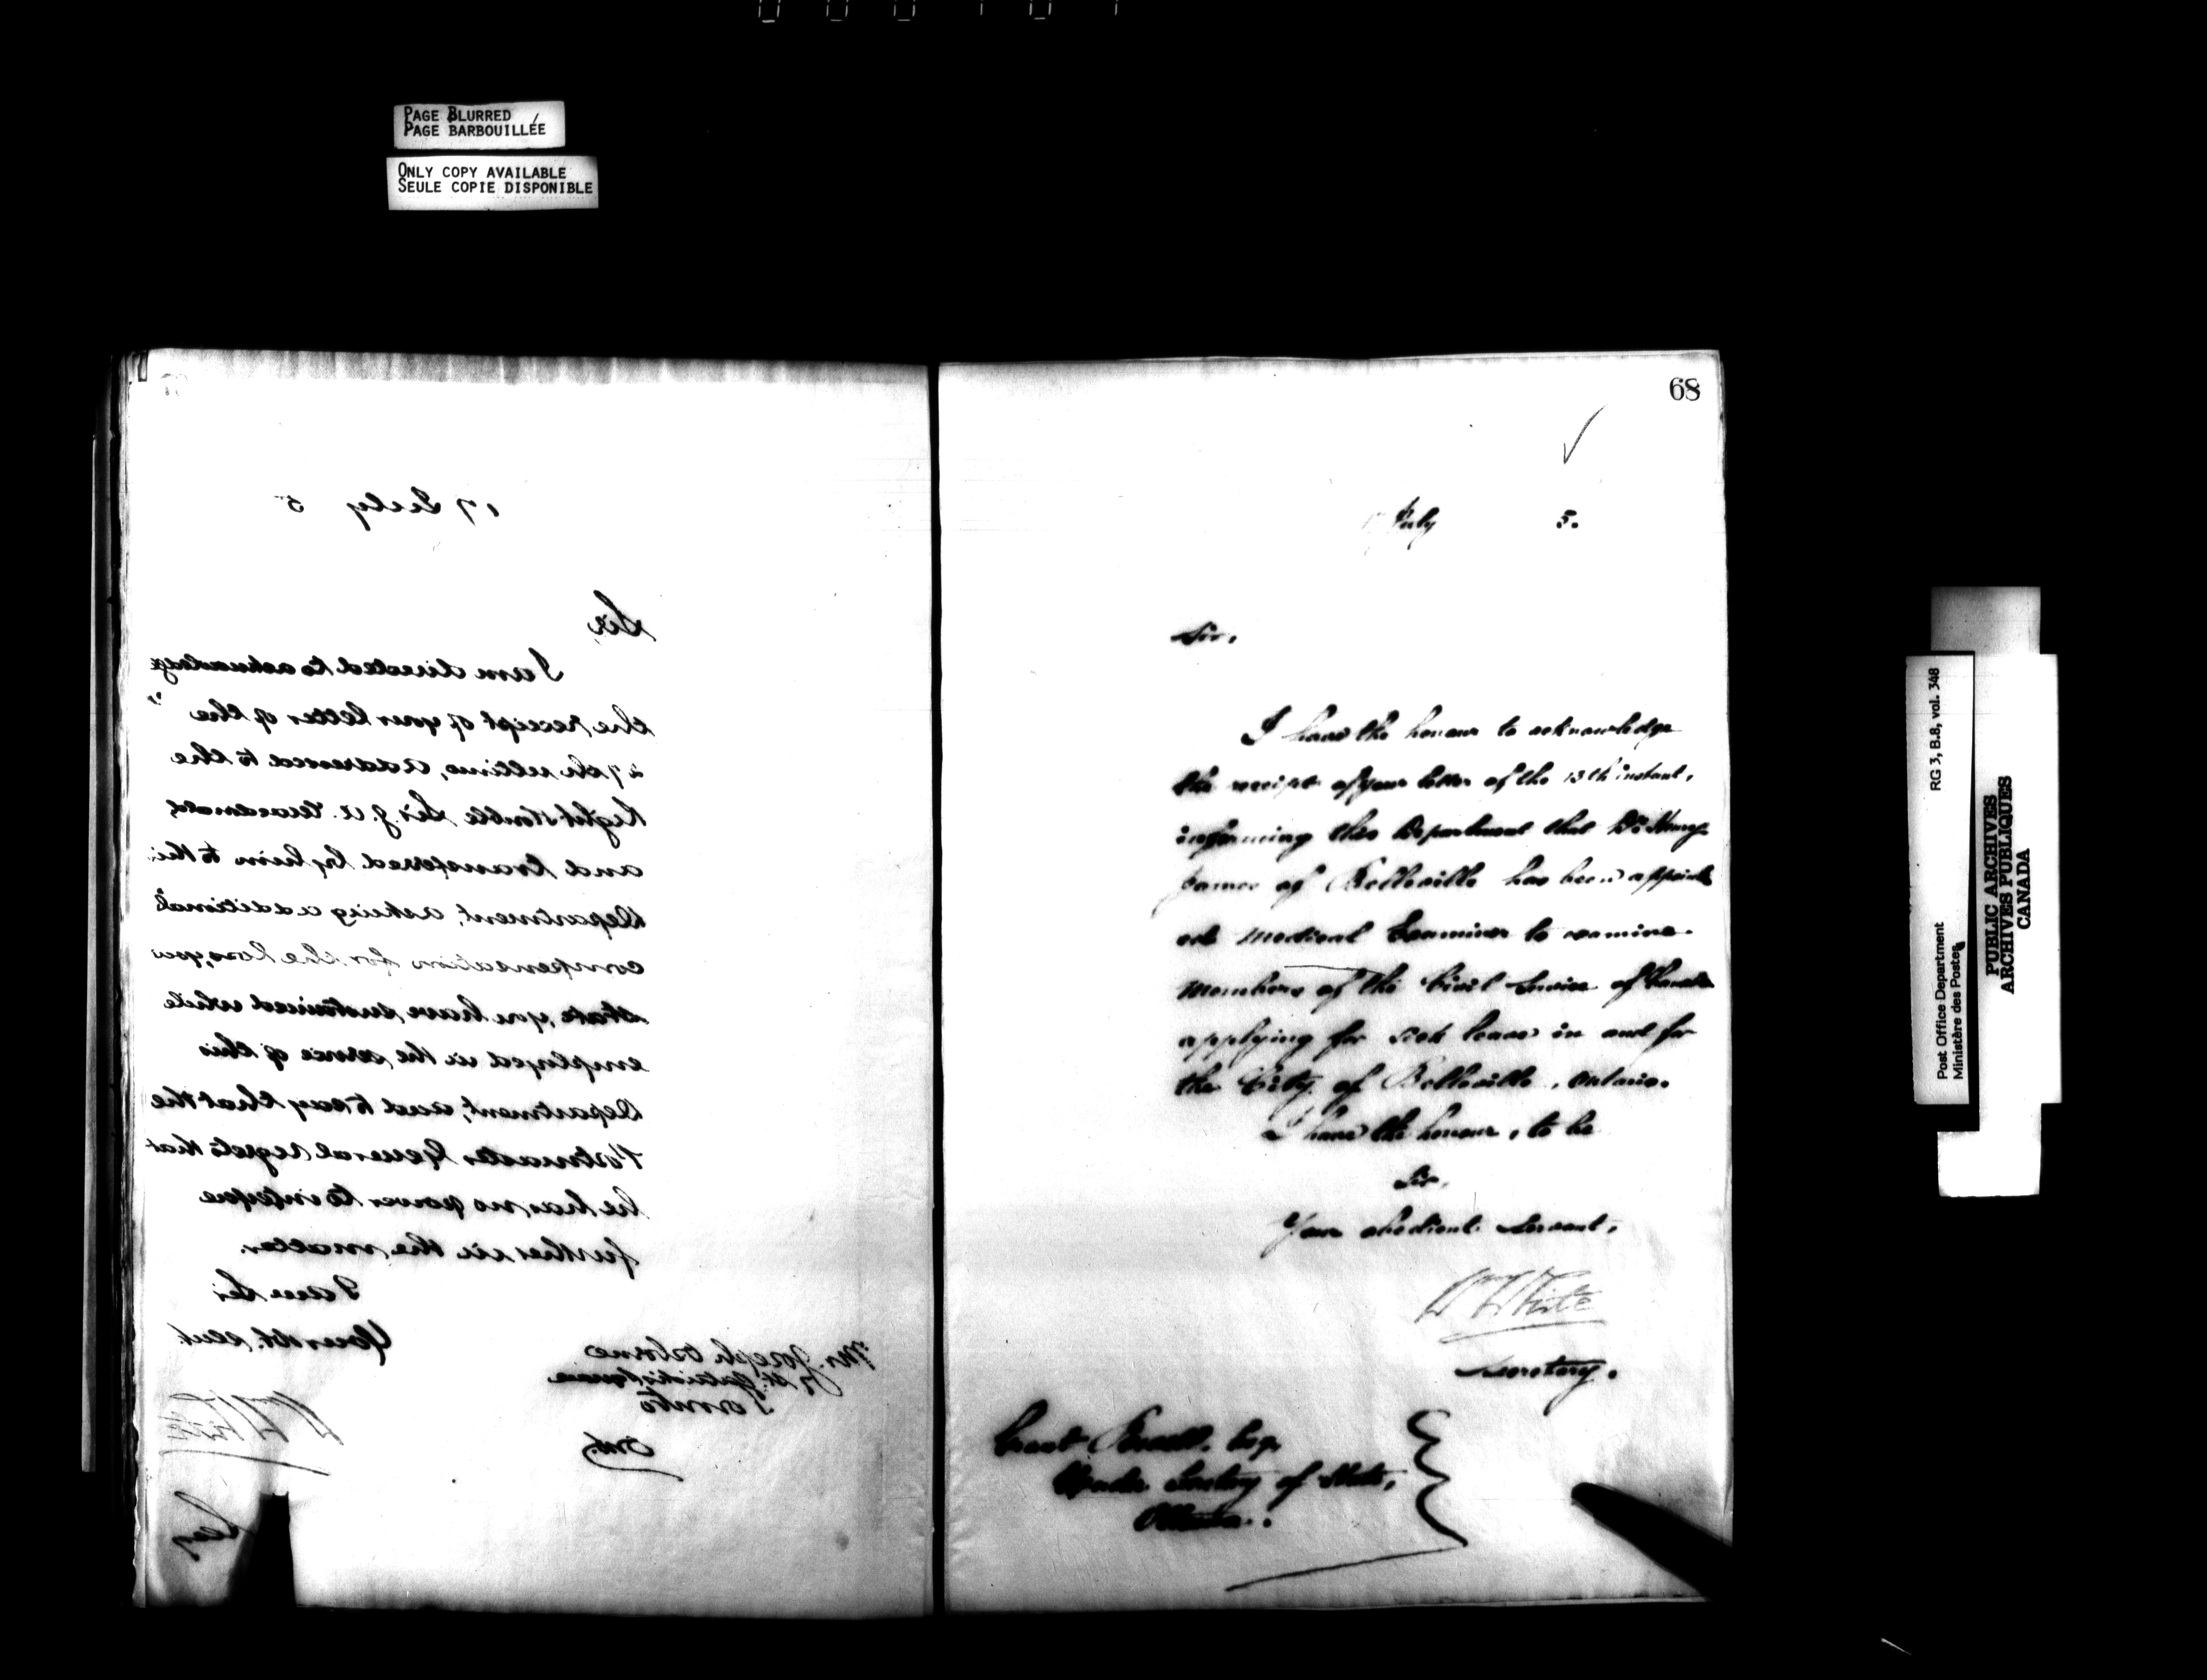 PAGE BLURRED
PAGE BARBOUILLÉE
ONLY COPY AVAILABLE
SEULE COPIE DISPONIBLE
17 July 5
Sir,
I am directed to acknowledge
the receipt of your letter of the
27th ultimo, addressed to the
Right Honble Sir J. A. Macdonald,
and transferred by him to this
Department, asking additional
compensation for the loss, you
state, you have sustained while
employed in the service of this
Department, and to say that the
Postmaster General regrets that
he has no power to interfere
further in the matter.
I am Sir
Your obt. servt.
Mr. Joseph Osborne
St. Patrick's Square
Toronto
Ont.
W White
Secy
68
17 July 5.
Sir,
I have the honour to acknowledge
the receipt of your letter of the 13th instant,
informing this Department that Dr. Henry
James of Belleville has been appoint-
ed Medical Examiner to examine
Members of the Civil Service of Canada
applying for sick leave in and for
the City of Belleville, Ontario.
I have the honour, to be
Sir,
Your obedient Servant,
W White
Secretary.
Grant Powell, Esq.
Under Secretary of State,
Ottawa.
Post Office Department RG 3, B.8, vol. 348
Ministère des Postes
PUBLIC ARCHIVES
ARCHIVES PUBLIQUES
CANADA